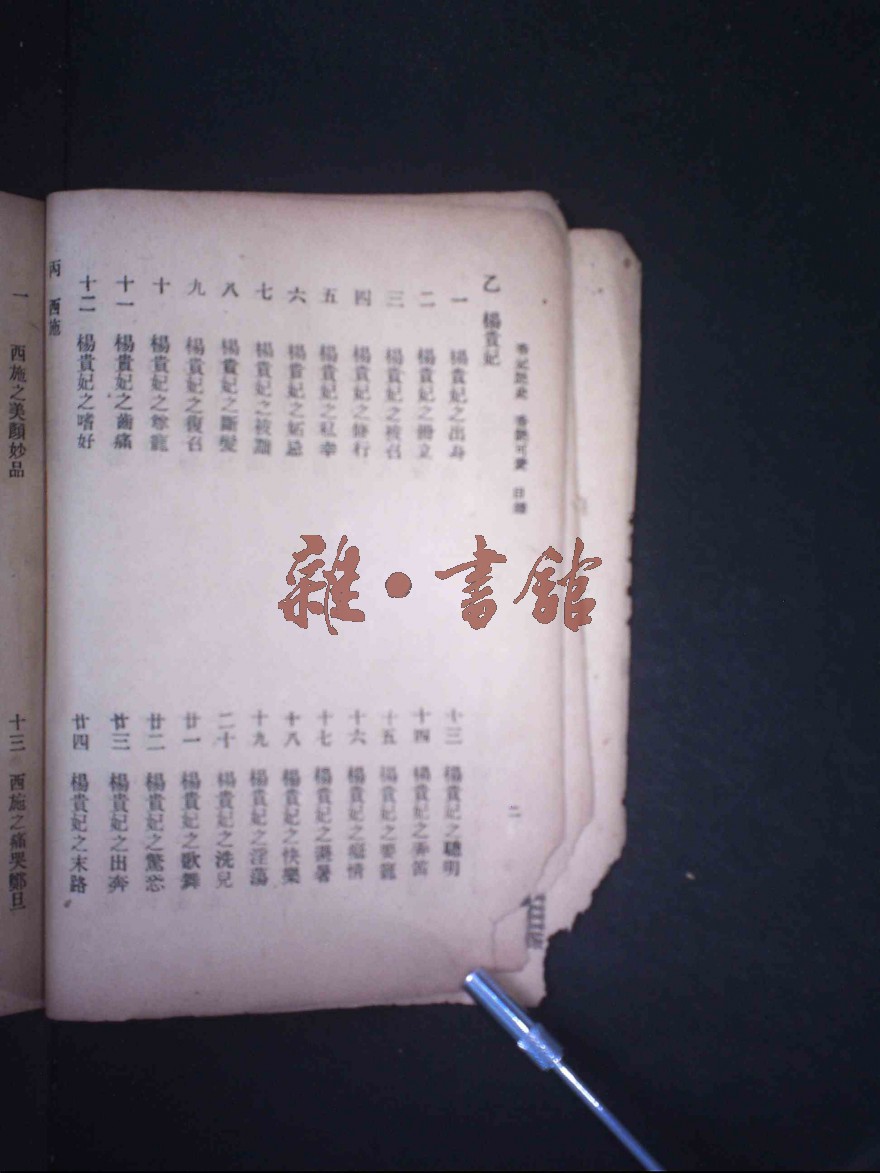 目錄
二
乙 楊貴妃
一 楊貴妃之出身
二 楊貴妃之冊立
三 楊貴妃之被召
四 楊貴妃之修行
五 楊貴妃之私幸
六 楊貴妃之妬忌
七 楊貴妃之被黜
八 楊貴妃之斷髮
九 楊貴妃之復召
十 楊貴妃之專寵
十一 楊貴妃之齒痛
十二 楊貴妃之嗜好
十三 楊貴妃之聰明
十四 楊貴妃之弄笛
十五 楊貴妃之要寵
十六 楊貴妃之癡情
十七 楊貴妃之避暑
十八 楊貴妃之快樂
十九 楊貴妃之淫蕩
二十 楊貴妃之洗兒
廿一 楊貴妃之歌舞
廿二 楊貴妃之驚恐
廿三 楊貴妃之出奔
廿四 楊貴妃之末路
丙 西施
一 西施之美顏妙品
十三 西施之痛哭鄭旦
雜·書館